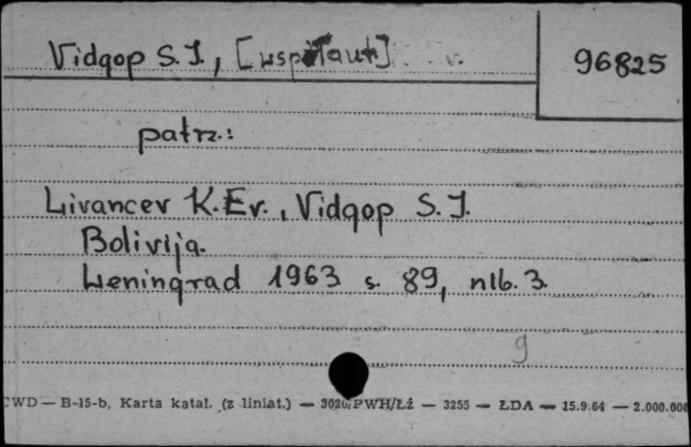 Vidgop S. I., [współaut]
96825
patrz.:
Livancev K. Ev., Vidgop S. I.
Bolivija.
Leningrad 1963 s. 89, nlb. 3.
9
CWD — B-15-b, Karta katal. (z liniat.) — PWH/Łź — 3255 — ŁDA — 15.9.64 — 2.000.000